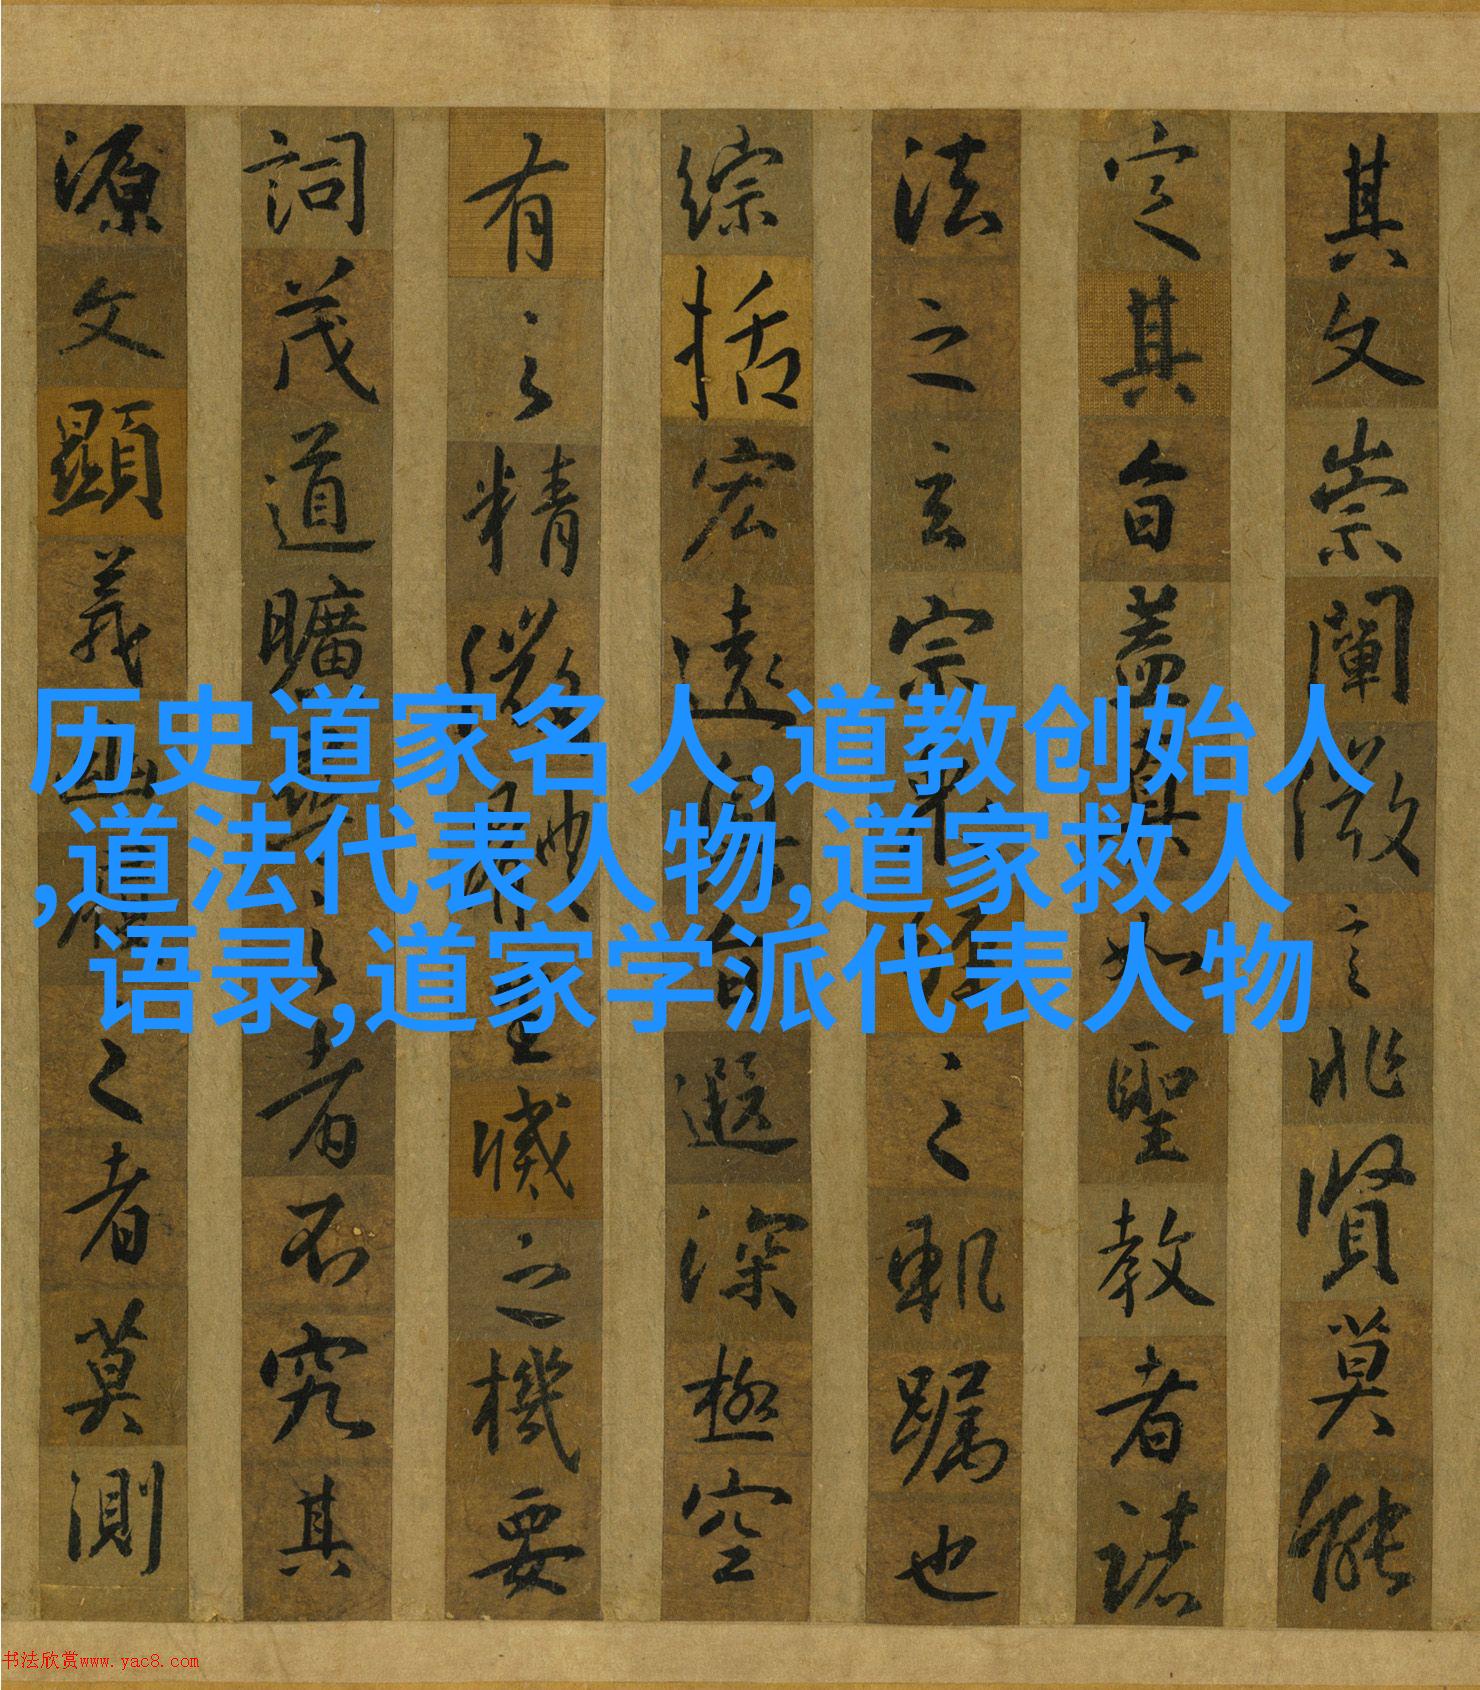 其文崇闡微言非賢莫能
定其旨蓋真如聖教者諸
法之玄宗眾經之軌躅也
綜括宏遠奧旨遐深極空
有之精微體生滅之機要
詞茂道曠尋之者不究其
源文顯義幽履之者莫測
历史道家名人,道教创始人
,道法代表人物,道家救人
语录,道家学派代表人物
书法欣赏www.yac8.com